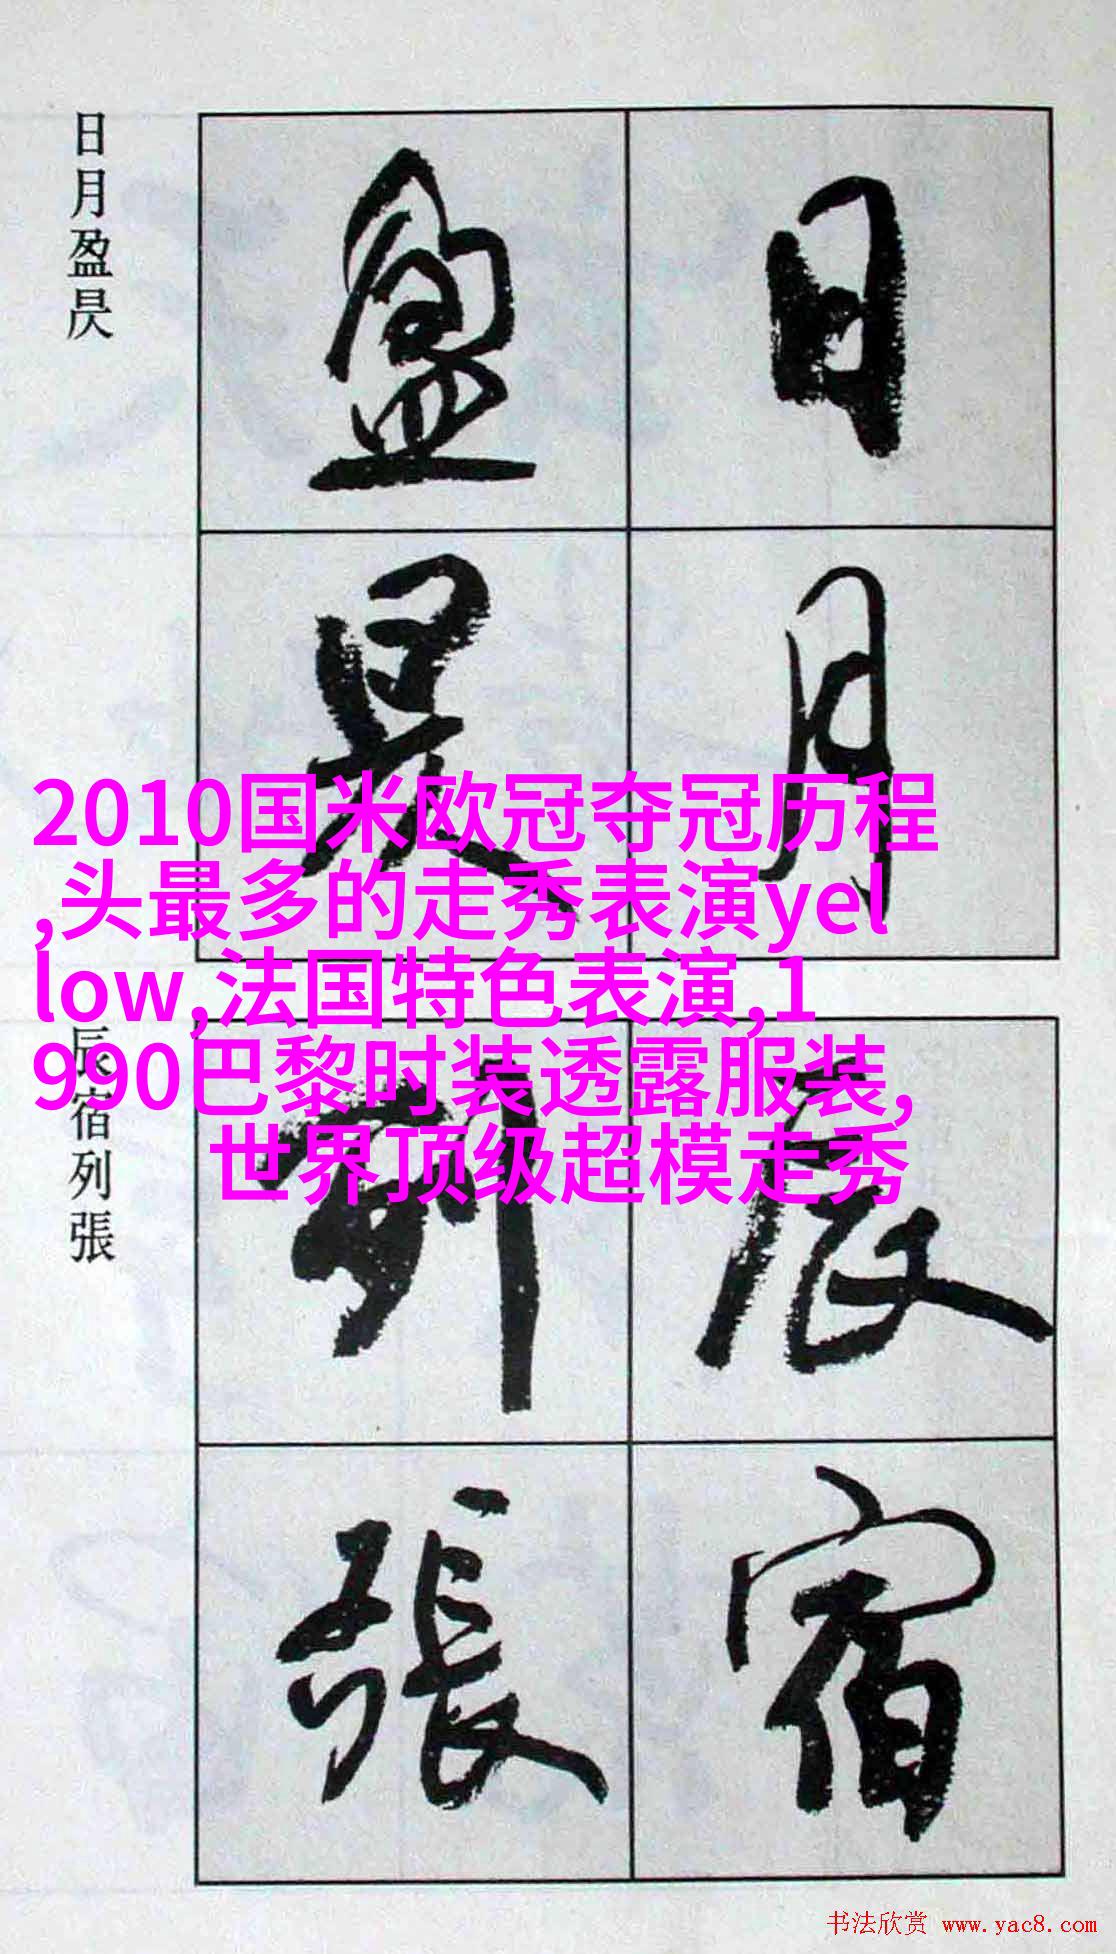 日月盈昃
日
月
盈
昃
2010国米欧冠夺冠历程
,头最多的走秀表演yel
low,法国特色表演,1
990巴黎时装透露服装,
世界顶级超模走秀
辰宿列張
辰
宿
列
張
书法欣赏 www.yac8.com